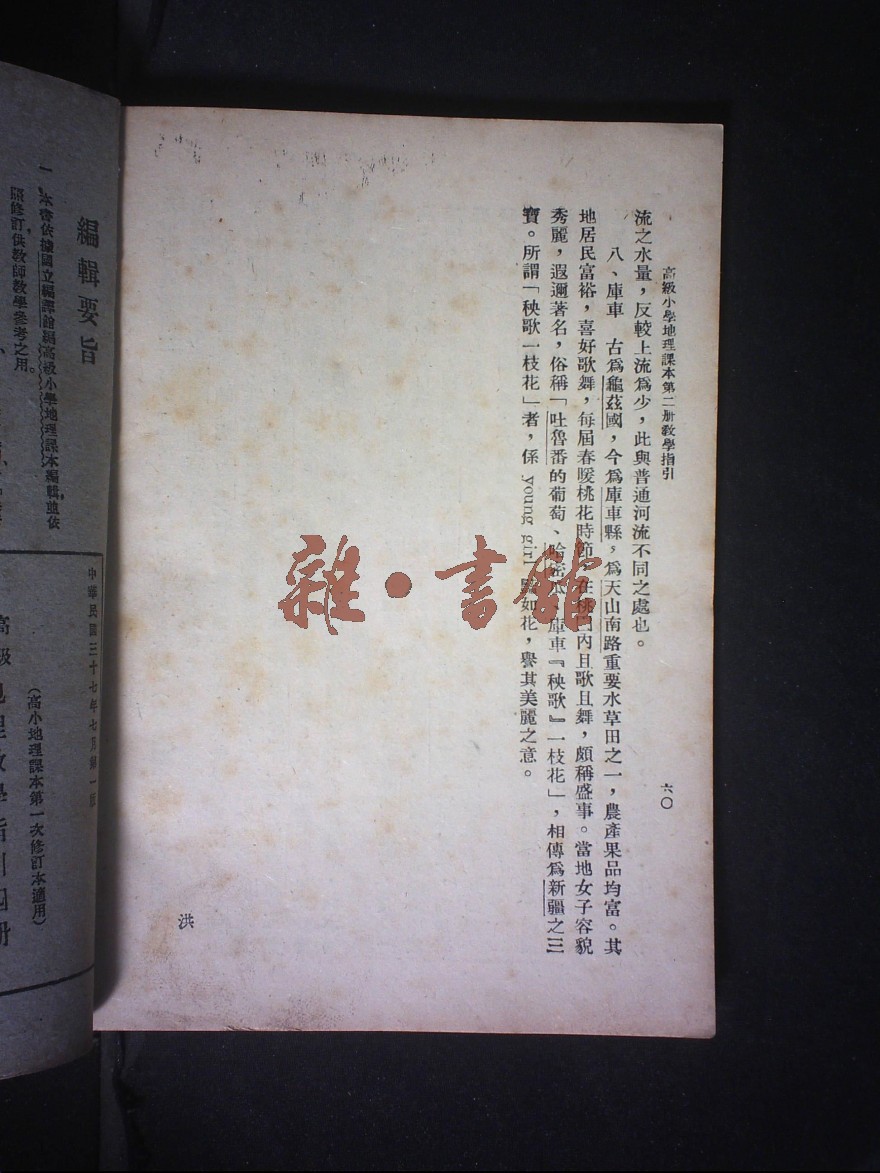 高級小學地理課本第二册教學指引
六〇
流之水量，反較上流爲少，此與普通河流不同之處也。
八、庫車　古爲龜茲國，今爲庫車縣，爲天山南路重要水草田之一，農產果品均富。其
地居民富裕，喜好歌舞，每屆春暖桃花時節，在桃園內且歌且舞，頗稱盛事。當地女子容貌
秀麗，遐邇著名，俗稱「吐魯番的葡萄、哈密瓜、庫車『秧歌』一枝花」，相傳爲新疆之三
寶。所謂「秧歌一枝花」者，係 young girl 如花，譽其美麗之意。
洪
雜·書館
編輯要旨
一、本書依據國立編譯館編高級小學地理課本編輯，並依
照修訂供教師教學參考之用。
中華民國三十七年七月第一版
（高小地理課本第一次修訂本適用）
高級地理教學指引四册